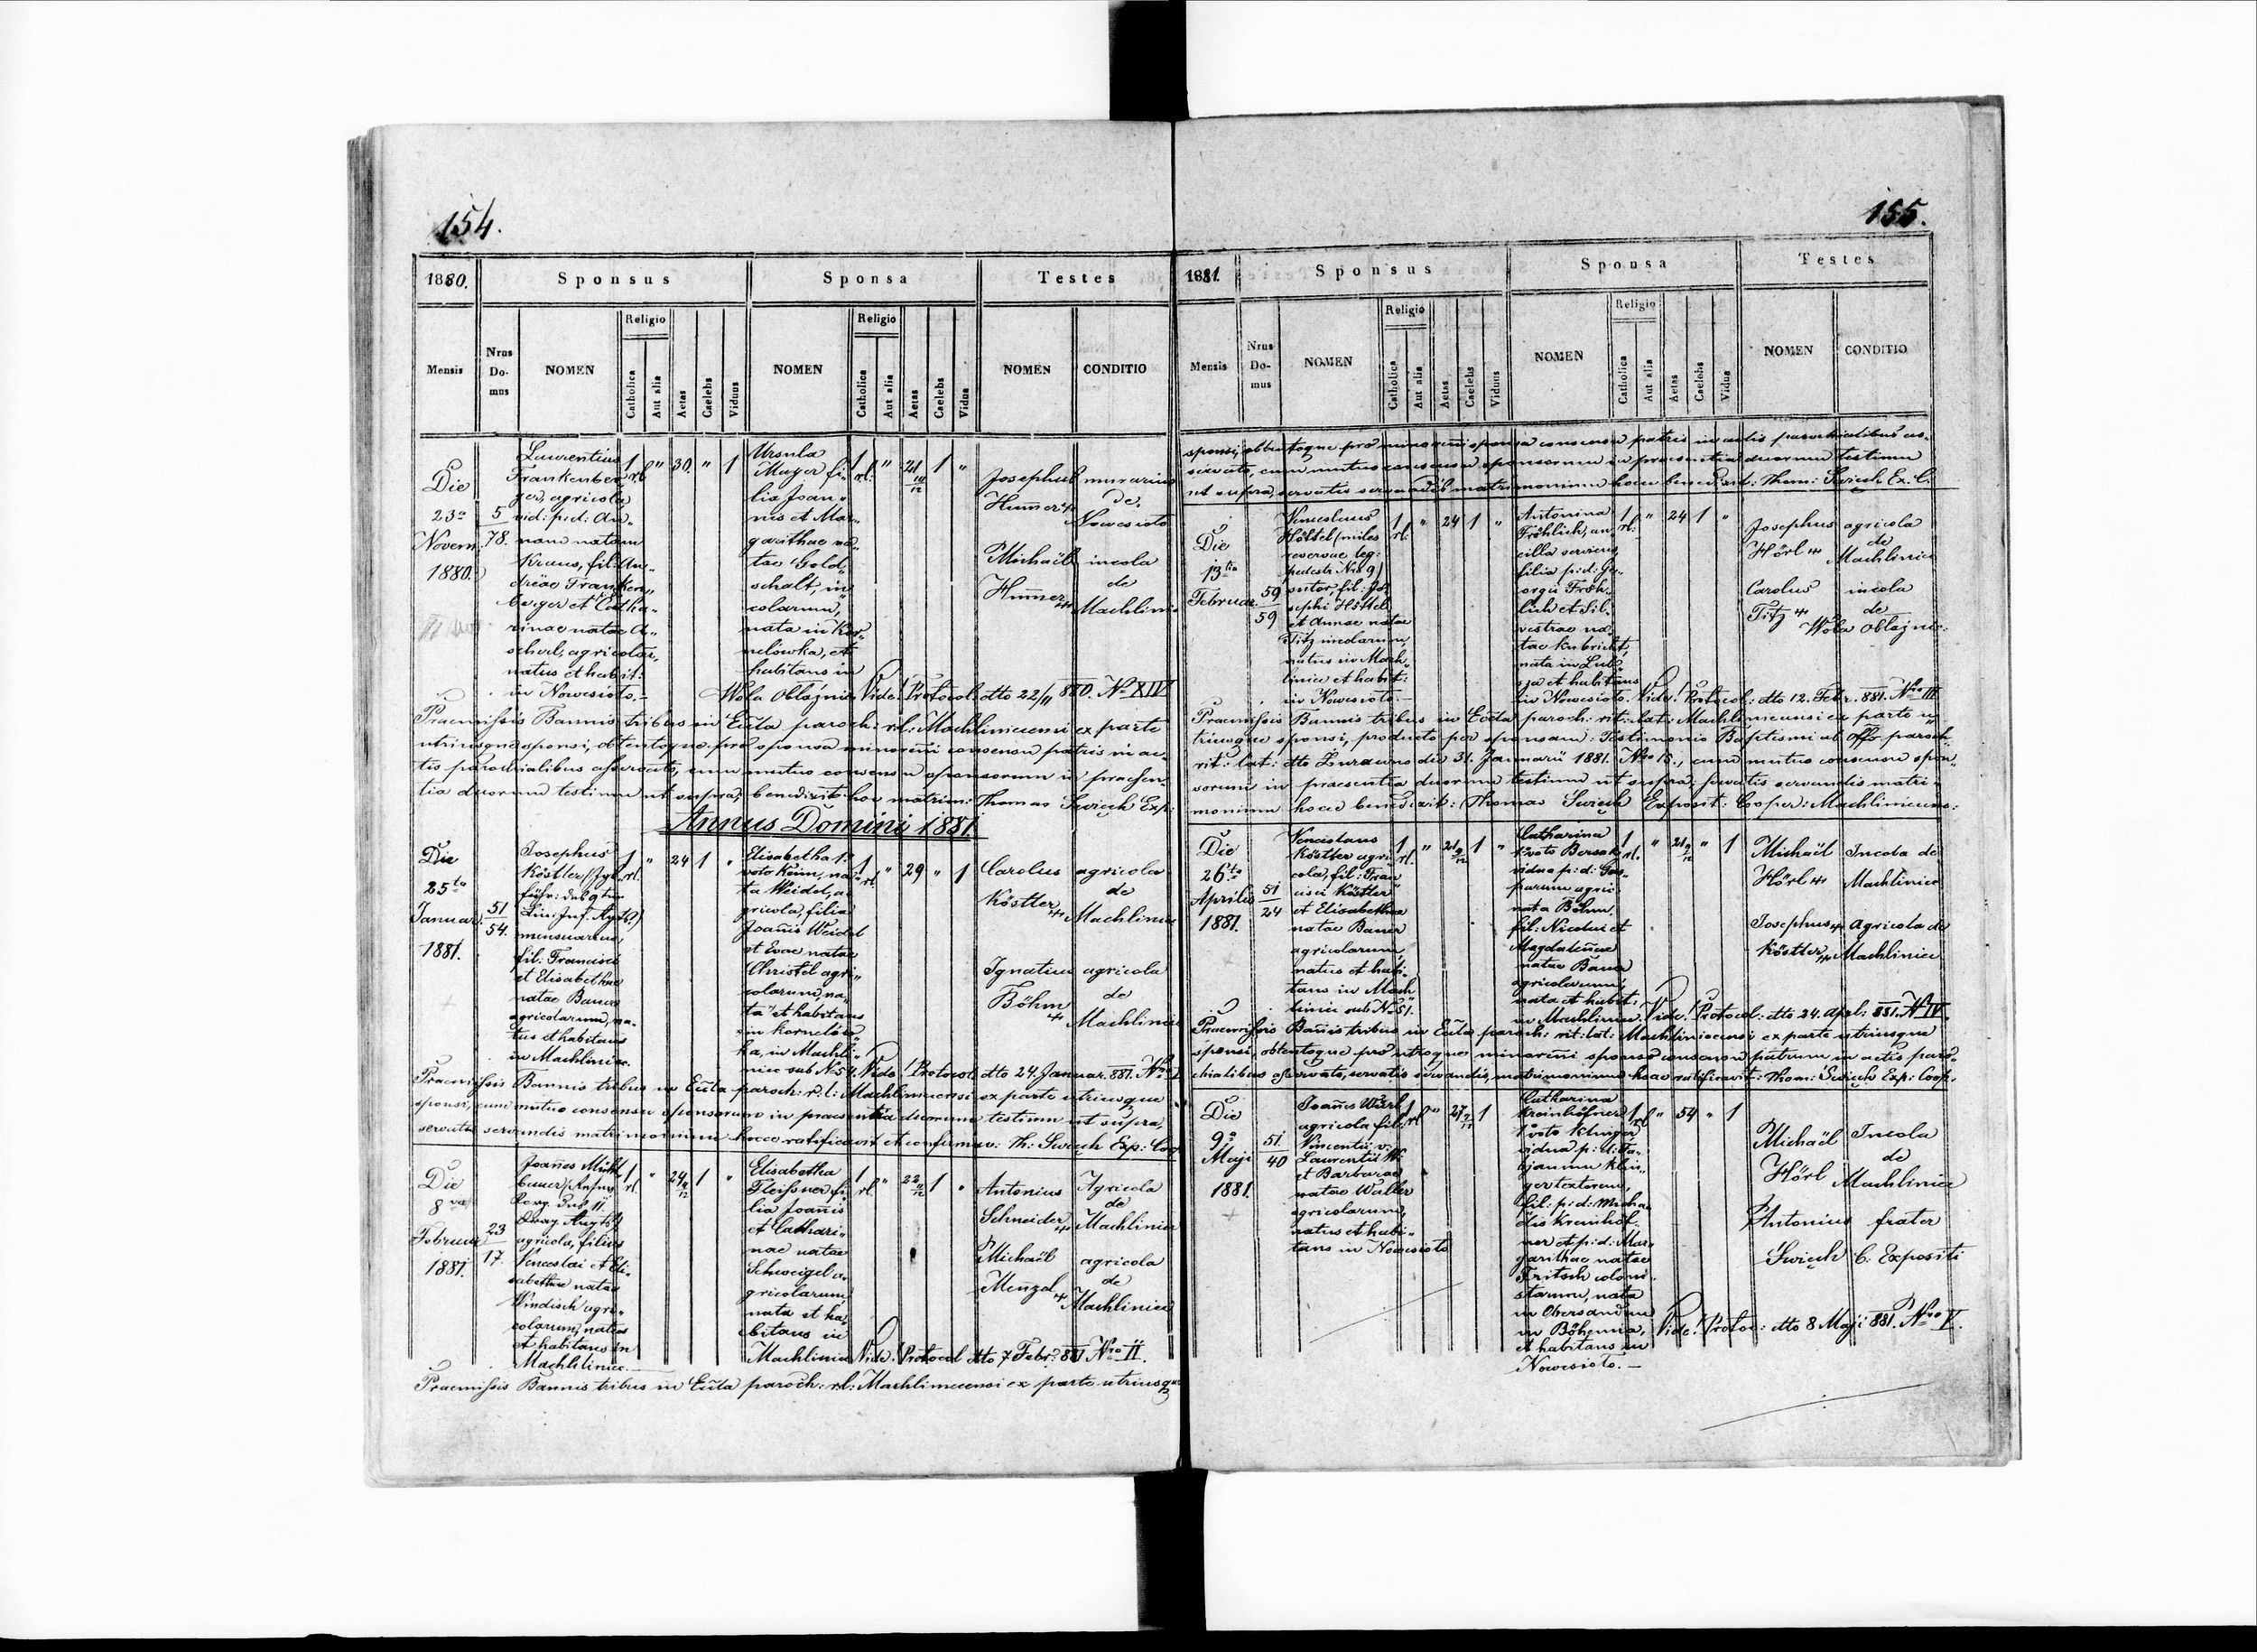 154.
1880.
Sponsus
Sponsa
Testes
Mensis
Nrus Do- mus
NOMEN
Religio
Catholica
Aut alia
Aetas
Caelebs
Viduus
NOMEN
Religio
Catholica
Aut alia
Aetas
Caelebs
Vidua
NOMEN
CONDITIO
Die
23a
Novem.
1880.
5
78.
Laurentius
Frankenber„
ger, agricola
vid: p: d: An„
nam natam
Kraus, fil: An„
dreae Franken„
berger et Catha„
rinae natae A„
scherl, agricolar,
natus et habit:
in Nowesioto.—
1 rl
"
30.
"
1
Ursula
Mayer fi„
lia Joan„
nis et Mar„
garithae na„
tae Gold„
schalt, in„
colarum,
nata in Kor„
nelowka, et
habitans in
Wola Oblaznica
1 rl:
"
21 10/12
1
"
Josephus
Humer
murarius
de
Nowesioto
Michaël
Humer
incola
de
Machlinie
Vide! Protocol: dto 22/11 880. No XIV
Praemissis Bannis tribus in Ecclã paroch: r.l: Machliniecensi ex parte
utriusque sponsi, obtentoque pro sponsa minorenni consensu patris in ac„
tis parochialibus asservato, cum mutuo consensu sponsorum in praesen„
tia duorum testium ut supra, benedixit hoc matrim: Thomas Swięch Exp:
Annus Domini 1881.
Die
25ta
Januar.
1881.
51
54.
Josephus
Köstler
führ: des 9ten
mensuarius,
fil: Francisci
et Elisabethae
natae Bauer
agricolarum, na„
tus et habitans
in Machliniec.
1 rl.
"
24
1
"
Elisabetha 1o
voto Keim, na„
ta Weidel, a„
gricola, filia
Joannis Weidel
et Evae natae
Christel agri„
colarum, na„
ta et habitans
in Kornelow„
ka, in Machli„
niec sub No 54.
1 rl
"
29
"
1
Carolus
Köstler
agricola
de
Machliniec
Ignatius
Böhm
agricola
de
Machliniec
Vide! Protocol: dto 24. Januar. 881. No I
Praemissis Bannis tribus in Ecclã paroch: r.l: Machliniecensi ex parte utriusque
sponsi, cum mutuo consensu sponsorum in praesentia duorum testium ut supra,
servatis servandis matrimonium hocce ratificavit et confirmav: Th: Swięch Exp: Coo
Die
8va
Februar.
1881.
23
17.
Joannes
agricola, filius
Venceslai et Eli„
sabethae natae
Windisch agri„
colarum, natus
et habitans in
Machliniec.
1 rl.
"
24
1
"
Elisabetha
Fleissner fi„
lia Joannis
et Cathari„
nae natae
Schweigel a„
gricolarum
nata et ha„
bitans in
Machliniec
1 rl.
"
22
1
"
Antonius
Schneider
Agricola
de
Machliniec
Michaël
Menzel
agricola
de
Machliniec
Vide! Protocol dto 7 Febr: 881 Nro II.
Praemissis Bannis tribus in Ecclã paroch: rl: Machliniecensi ex parte utriusque
155.
1881.
Sponsus
Sponsa
Testes
Mensis
Nrus Do- mus
NOMEN
Religio
Catholica
Aut alia
Aetas
Caelebs
Viduus
NOMEN
Religio
Catholica
Aut alia
Aetas
Caelebs
Vidua
NOMEN
CONDITIO
sponsi, obtentoque pro minorenni sponsa consensu patris in actis parochialibus as„
servato, cum mutuo consensu sponsorum in praesentia duorum testium
ut supra, servatis servandis matrimonium hocce benedixit: Thom: Swięch Ex. C.
Die
13tia
Februar.
59
59
Venceslaus
Höhtel (miles
reservae leg:
pedestr: Nro 9)
sutor, fil: Jo„
sephi Höhtel
et Annae natae
Titz incolarum,
natus in Mach„
liniec et habit:
in Nowesioto.—
1 rl:
"
24
1
"
Antonina
Fröhlich, an„
cilla serviens,
filia p: d: Ge„
orgii Fröh„
lich et Sil„
vestrae na„
tae Kubricht,
nata in Lub„
sza et habitans
in Nowesioto.
1 rl:
"
24
1
"
Josephus
Hörl
agricola
de
Machliniec
Carolus
Titz
incola
de
Wola Oblaznic:
Vide! Protocol: dto 12. Febr. 881. Nro III
Praemissis Bannis tribus in Ecclã paroch: rit: lat: Machliniecensi ex parte u„
triusque sponsi, producto per sponsam: Testimonio Baptismi ab Offo paroch:
rit: lat: dto Żurawno die 31. Januarii 1881. Nro 15., cum mutuo consensu spon„
sorum in praesentia duorum testium ut supra, servatis servandis matri„
monium hocce benedixit: Thomas Swięch Exposit: Cooper: Machliniecens:
Die
26ta
Aprilis
1881.
51
24
Venceslaus
Köstler agri„
cola, fil: Fran„
cisci Köstler
et Elisabethae
natae Bauer
agricolarum,
natus et habi„
tans in Mach„
liniec sub No 51.
1 rl.
"
21 9/12
1
"
Catharina
1o voto Bersak
vidua p: d: Gas„
parum agri:
nata Böhm,
fil: Nicolai et
Magdalenae
natae Bauer
agricolarum,
nata et habit:
in Machliniec.
1 rl.
"
21 2/12
"
1
Michaël
Hörl
Incola de
Machliniec
Josephus
Köstler
Agricola de
Machliniec
Vide! Protocol: dto 24. April: 881. No IV.
Praemissis Bannis tribus in Ecclã paroch: rit: lat: Machliniecensi ex parte utriusque
sponsi, obtentoque pro utroque minorenni sponso consensu patrum in actis paro„
chialibus asservato, servatis servandis, matrimonium hocce ratificavit: Thom: Swięch Exp: Coop.
Die
9a
Maji
1881.
51.
40
Joannes
agricola fil:
Vincentii v:
Laurentii W:
et Barbarae
natae Waller
agricolarum,
natus et habi„
tans in Nowesioto
1 rl
"
27 7/12
1
Catharina
Kreinhöfner
1o voto Klinger
vidua p: d: Fa„
bianum Klin„
ger textorem,
fil: p: d: Micha„
ëlis Kreinhöf„
ner et p: d: Mar„
garithae natae
Fritsch coloni„
starum, nata
in
in Böhemia,
et habitans in
Nowesioto.—
1 rl
"
54
"
1
Michaël
Hörl
Incola
de
Machliniec
Antonius
Swięch
frater
C. Expositi
Vide! Protoc: dto 8 Maji 881. Nro V.